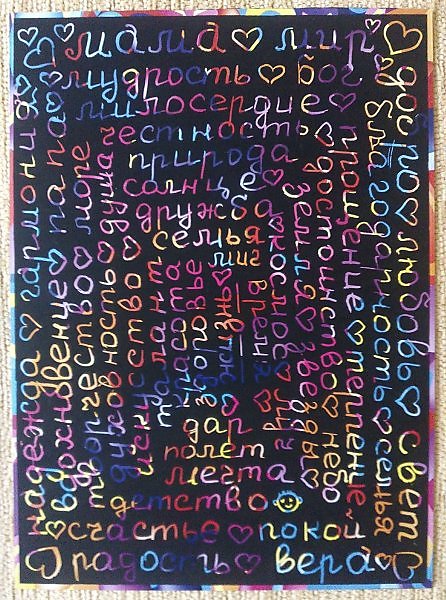 мама ♡ мир
мудрость ♡ бог
милосердие ♡
честность
природа
солнце ♡
дружба
семья
миг
дар
полёт
мечта
детство
счастье ♡ покой
радость ♡ вера
надежда ♡ гармония
вдохновение ♡ папа
творчество ♡ море
духовность ♡ душа
искусство
талант
красота
здоровье
жизнь
время
космос
земля ♡ звёзды
достоинство ♡ небо
прощение ♡ терпение
благодарность ♡ семья
добро ♡ любовь ♡ свет